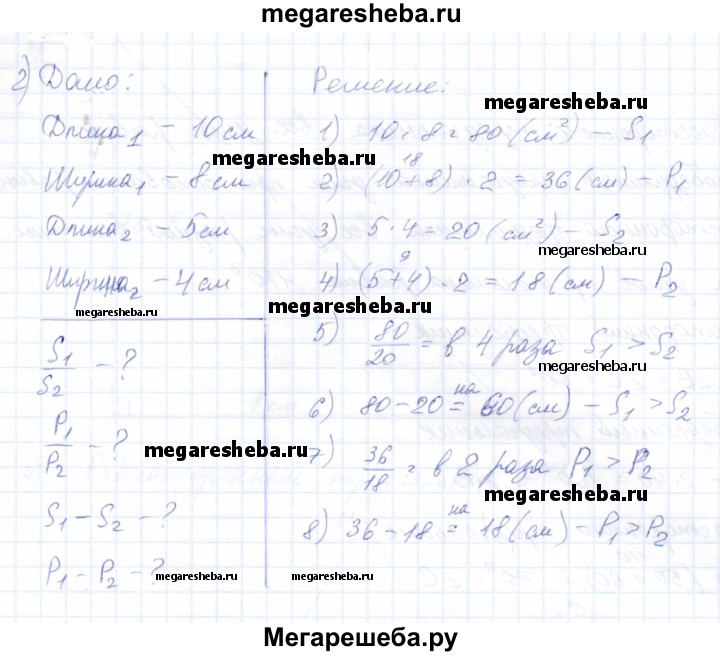 megaresheba.ru
2) Дано:
Длина₁ - 10 см
Ширина₁ - 8 см
Длина₂ - 5 см
Ширина₂ - 4 см
S₁/S₂ - ?
P₁/P₂ - ?
S₁ - S₂ - ?
P₁ - P₂ - ?
Решение:
1) 10 · 8 = 80 (см²) - S₁
18
2) (10+8) · 2 = 36 (см) - P₁
3) 5 · 4 = 20 (см²) - S₂
9
4) (5+4) · 2 = 18 (см) - P₂
5) 80/20 = в 4 раза S₁ > S₂
6) 80 - 20 = на 60 (см) - S₁ > S₂
7) 36/18 = в 2 раза P₁ > P₂
8) 36 - 18 = на 18 (см) - P₁ > P₂
megaresheba.ru
megaresheba.ru
megaresheba.ru
megaresheba.ru
megaresheba.ru
megaresheba.ru
megaresheba.ru
megaresheba.ru
megaresheba.ru
megaresheba.ru
megaresheba.ru
Мегарешеба.ру